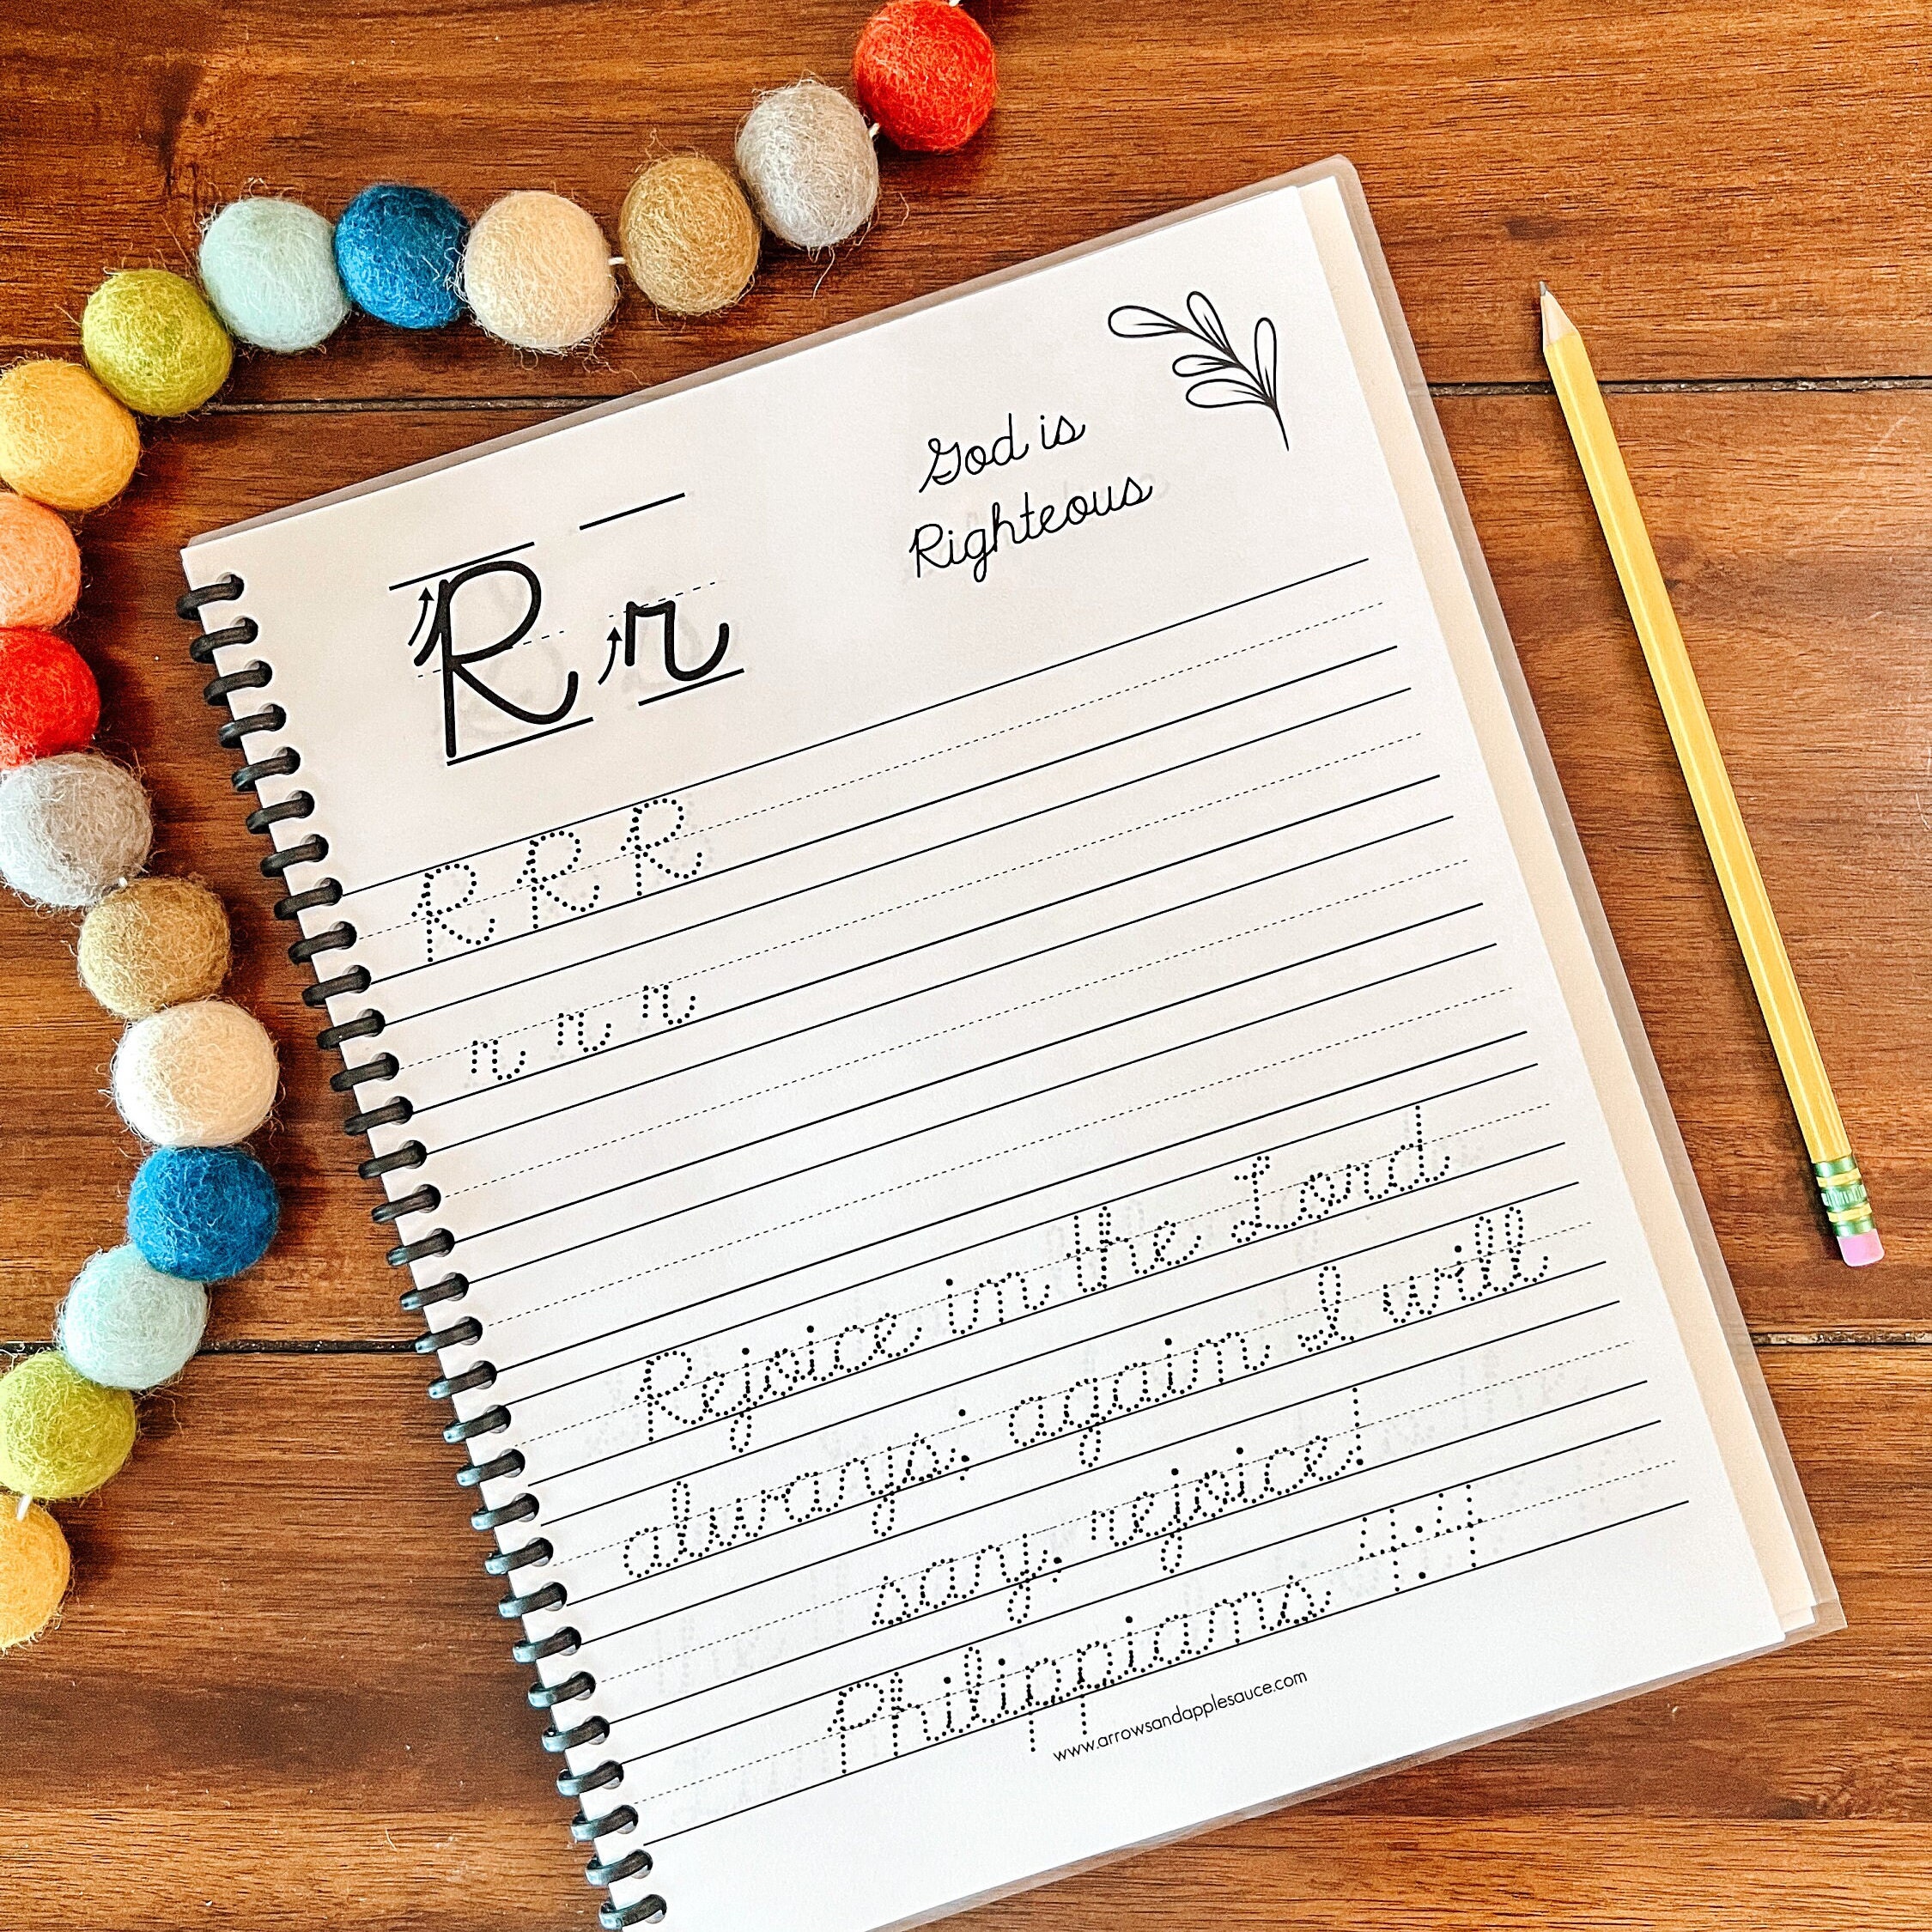 God is
Righteous
R r
R R R
r r r
Rejoice in the Lord
always; again I will
say, rejoice!
Philippians 4:4
www.arrowsandapplesauce.com